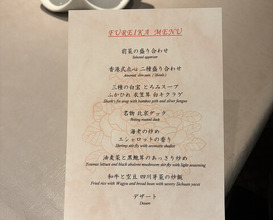 FUREIKA MENU
前菜の盛り合わせ
Selected appetizer
香港式点心 二種盛り合わせ
Assorted dim sum (2kinds)
三種の白宝 とろみスープ
ふかひれ 衣笠茸 白キクラゲ
Shark's fin soup with bamboo pith and silver fungus
名物 北京ダック
Peking roasted duck
海老の炒め
エシャロットの香り
Shrimp stir-fry with aromatic shallot
油麦菜と黒鮑茸のあっさり炒め
Gourmet lettuce and black abalone mushroom stir-fry with light seasoning
和牛と空豆 四川芽菜の炒飯
Fried rice with Wagyu and broad bean with savory Sichuan yacai
デザート
Dessert